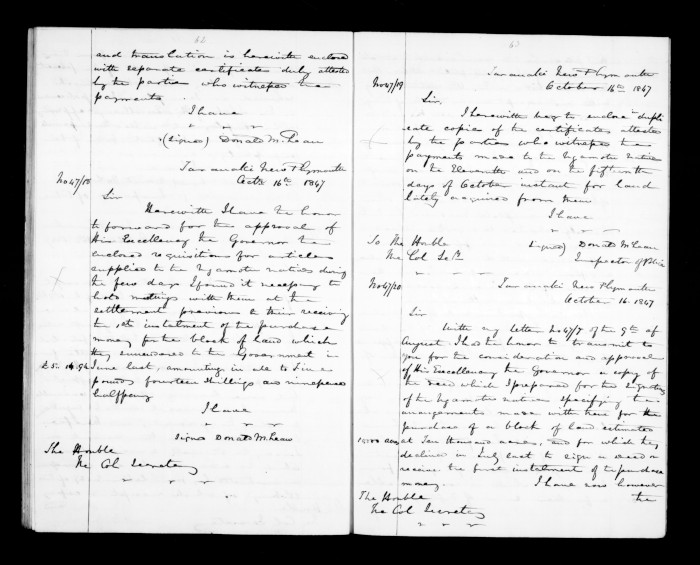 62
and translation is herewith enclosed
with separate certificates duly attested
by the parties who witnessed the
payments
I have
(signed) Donald McLean
Taranaki New Plymouth
Octr 16th 1847
No 47/18
Sir
Herewith I have the honor
to forward for the approval of
His Excellency the Governor the
enclosed requisition for articles
supplied to the Ngamotu natives during
the few days I found it necessary to
hold meetings with them at the
settlement previous to their receiving
the 1st instalment of the purchase
money for the block of land which
they surrendered to the Government in
£5. 14. 9½ June last, amounting in all to Five
pounds fourteen shillings and ninepence
halfpenny
I have
Signed Donald McLean
The Honble
The Col Secretary
63
Taranaki New Plymouth
October 16th 1847
No 47/19
Sir,
I herewith beg to enclose dupli
cate copies of the certificates attested
by the parties who witnessed the
payments made to the Ngamotu natives
on the Eleventh and on the fifteenth
days of October instant for land
lately acquired from them
I have
To The Honble
The Col Secy
Signed) Donald McLean
Inspector of Police
No 47/20
Taranaki New Plymouth
October 16. 1847
Sir
With my letter No 47/7 of the 9th of
August I had the honor to transmit to
you for the consideration and approval
of His Excellency the Governor a copy of
the deed which I prepared for the signature
of the Ngamotu natives specifying the
arrangements made with them for the
purchase of a block of land estimated
at Ten thousand acres, and for which they
declined in July last to sign a deed or
receive the first instalment of the purchase
money. I have now however
the
The Honble
The Col Secretary